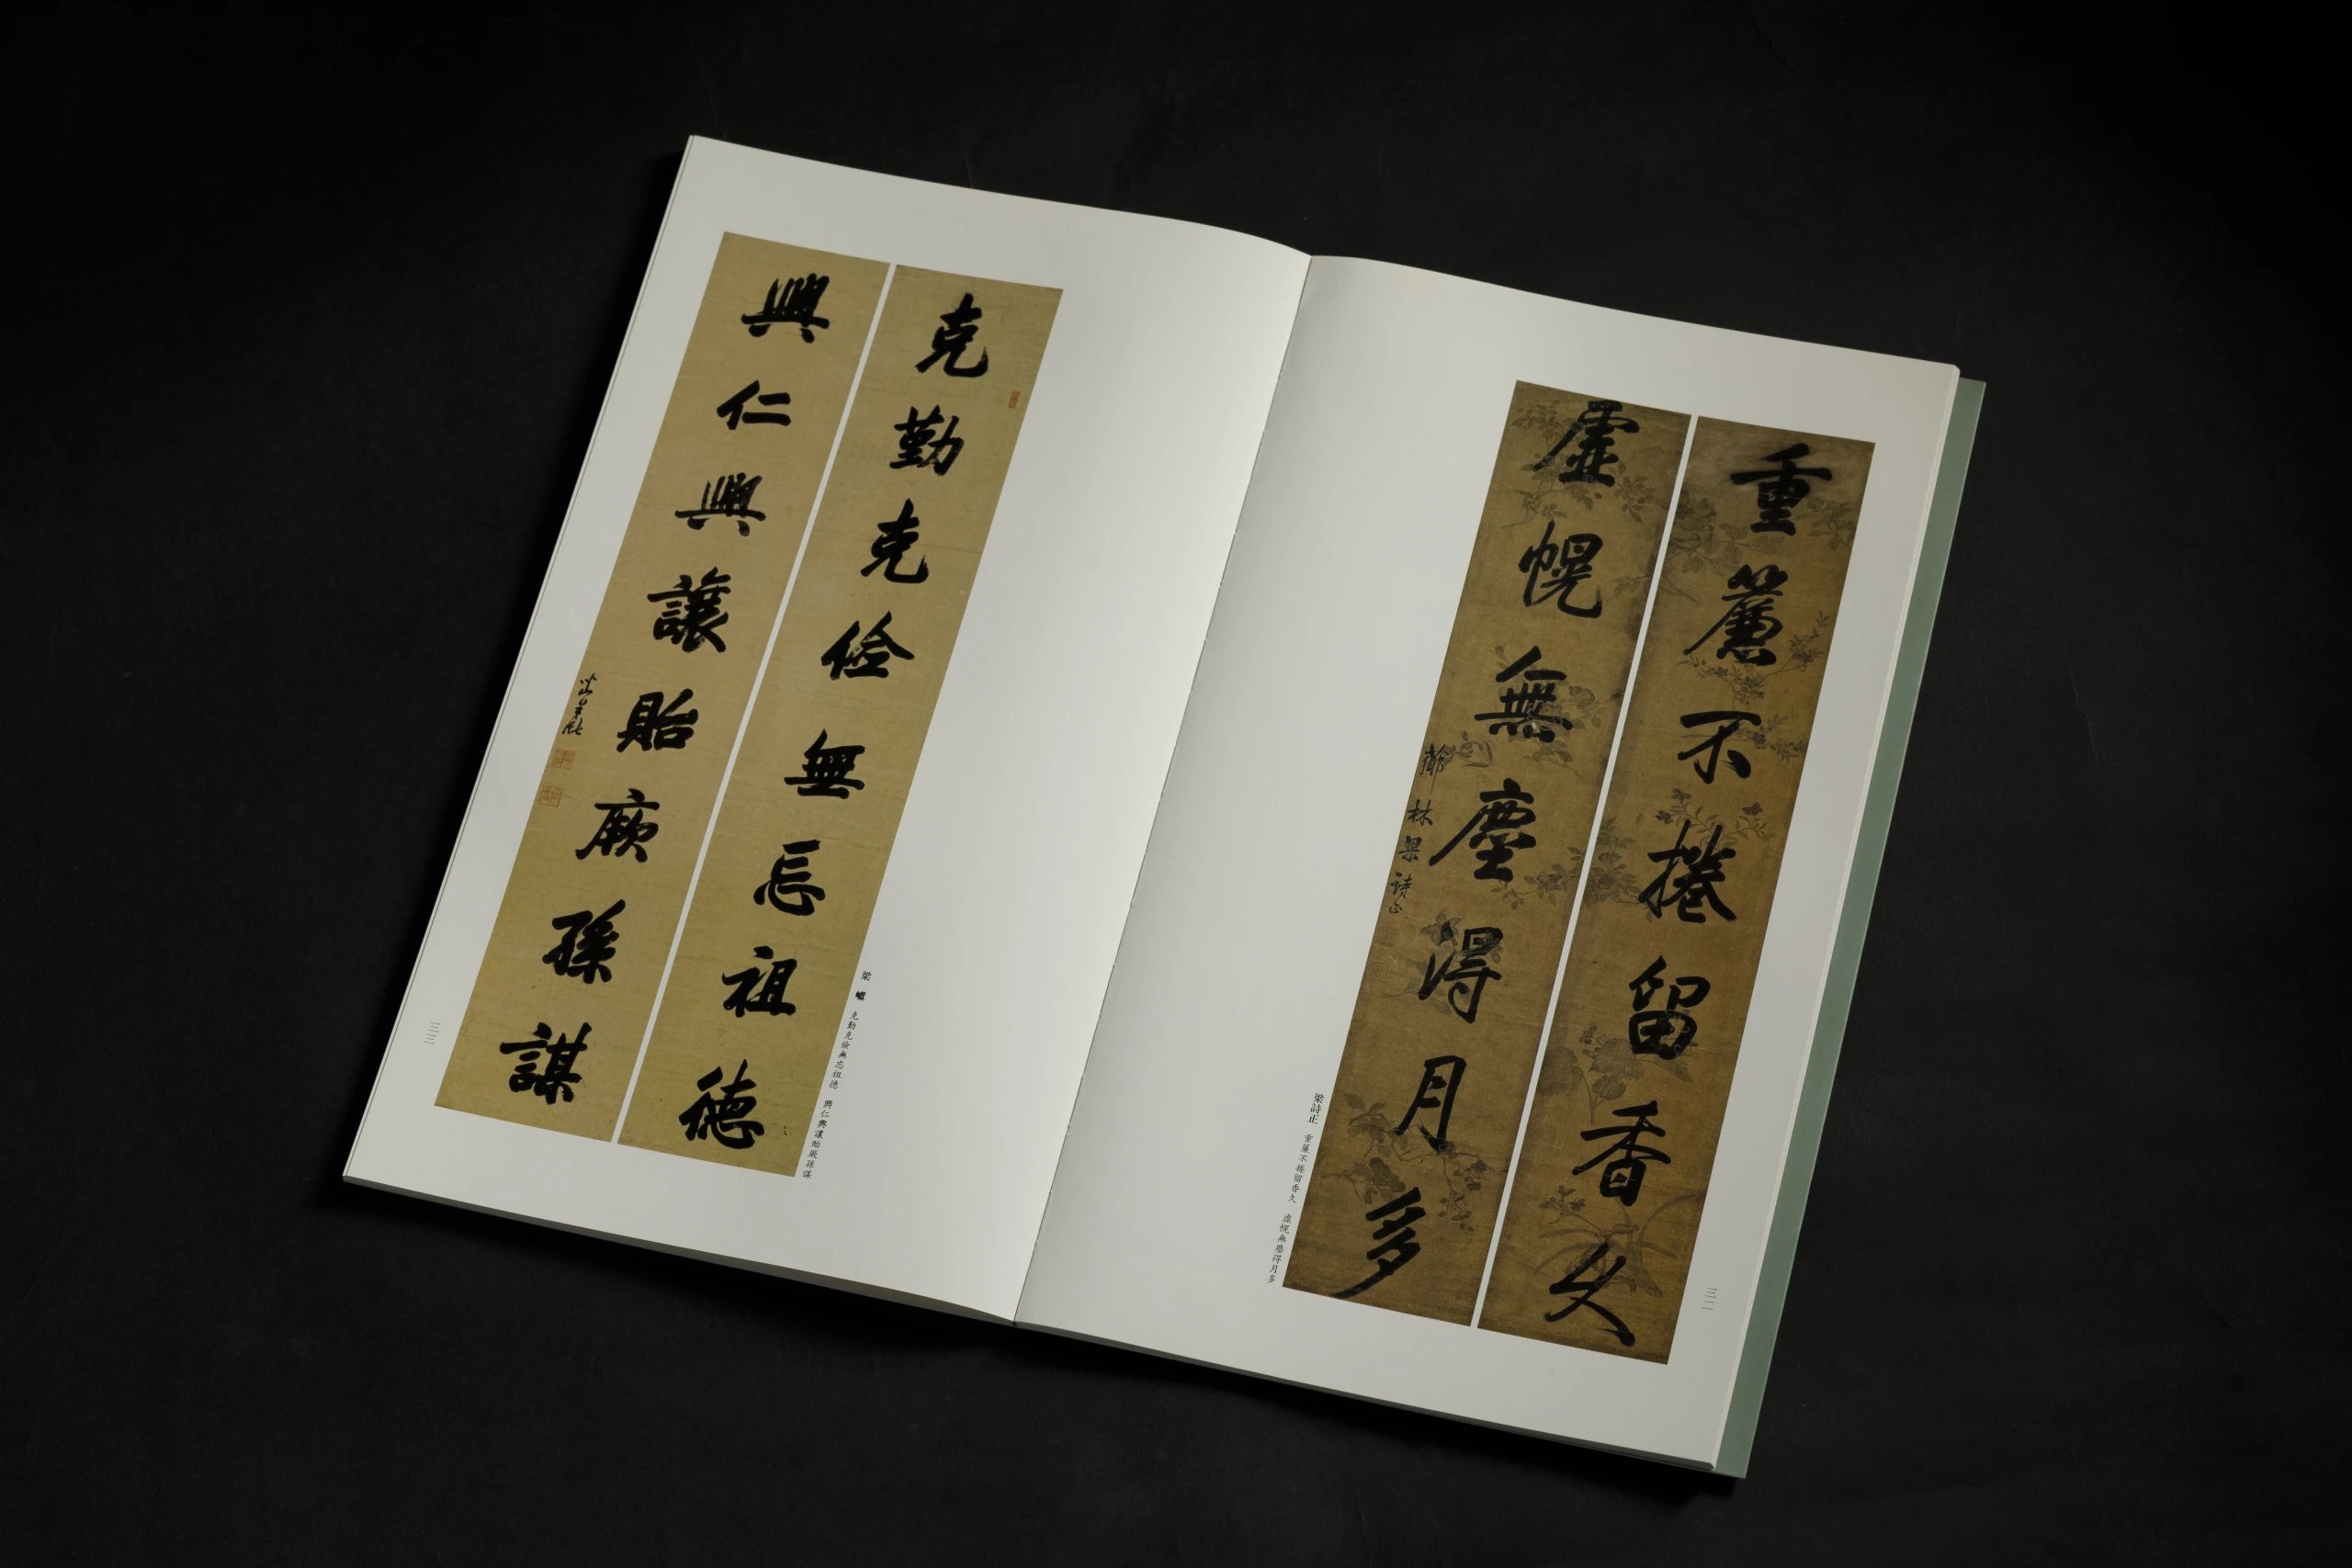 重簾不捲留香久
虛幌無塵得月多
薌林梁詩正
梁詩正 重簾不捲留香久 虛幌無塵得月多
三二
克勤克儉無忘祖德
興仁興讓貽厥孫謀
梁巘 克勤克儉無忘祖德 興仁興讓貽厥孫謀
三三